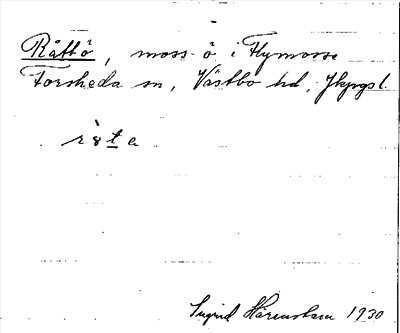 Råttö, moss-ö i Flymosse
Forsheda sn, Västbo hd, Jkpgs l.
Sigrid
1930